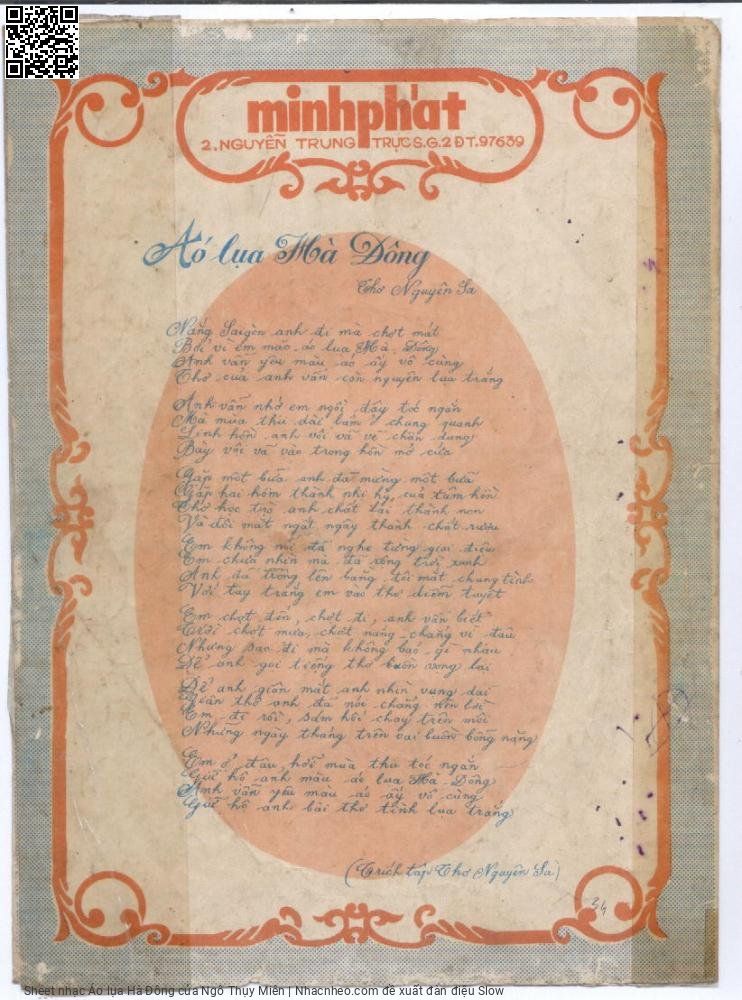 minhphát
2, NGUYỄN TRUNG TRỰC S.G.2 ĐT.97639
Áo lụa Hà Đông
Thơ Nguyên Sa
Nắng Saigòn anh đi mà chợt mát
Bởi vì em mặc áo lụa Hà Đông
Anh vẫn yêu màu áo ấy vô cùng
Thơ của anh vẫn còn nguyên lụa trắng
Anh vẫn nhớ em ngồi đây tóc ngắn
Mà mùa thu dài lắm ở chung quanh
Linh hồn anh vội vã vẽ chân dung
Bày vội vã vào trong hồn mở cửa
Gặp một bữa anh đã mừng một bữa
Gặp hai hôm thành nhị hỷ của tâm hồn
Thơ học trò anh chất lại thành non
Và đôi mắt ngất ngây thành chất rượu
Em không nói đã nghe từng giai điệu
Em chưa nhìn mà đã rộng trời xanh
Anh đã trông lên bằng đôi mắt chung tình
Với tay trắng em vào thơ diễm tuyệt
Em chợt đến, chợt đi, anh vẫn biết
Trời chợt mưa, chợt nắng, chẳng vì đâu
Nhưng sao đi mà không bảo gì nhau
Để anh gọi tiếng thơ buồn vọng lại
Để anh giận mắt anh nhìn vụng dại
Giận thơ anh đã nói chẳng nên lời
Em đi rồi, sám hối chạy trên môi
Những ngày tháng trên vai buồn bỗng nặng
Em ở đâu, hỡi mùa thu tóc ngắn
Giữ hộ anh màu áo lụa Hà Đông
Anh vẫn yêu màu áo ấy vô cùng
Giữ hộ anh bài thơ tình lụa trắng
(Trích tập Thơ Nguyên Sa)
34
Sheet nhạc Áo lụa Hà Đông của Ngô Thụy Miên | Nhacnheo.com đề xuất đàn điệu Slow